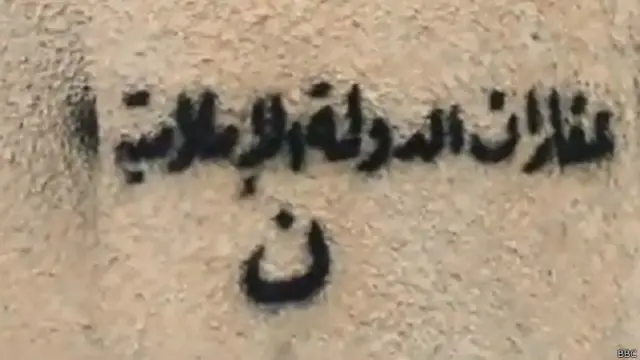 عقارات الدولة الإسلامية
ن
BBC